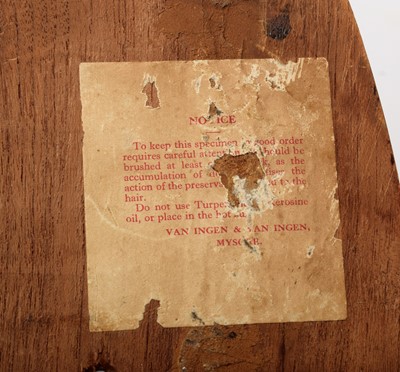 NOTICE
To keep this specimen good order
requires careful atten should be
brushed at least as the
accumulation of
action of the preserva to the
hair.
Do not use Turpe erosine
oil, or place in the hot
VAN INGEN & VAN INGEN,
MYSORE.